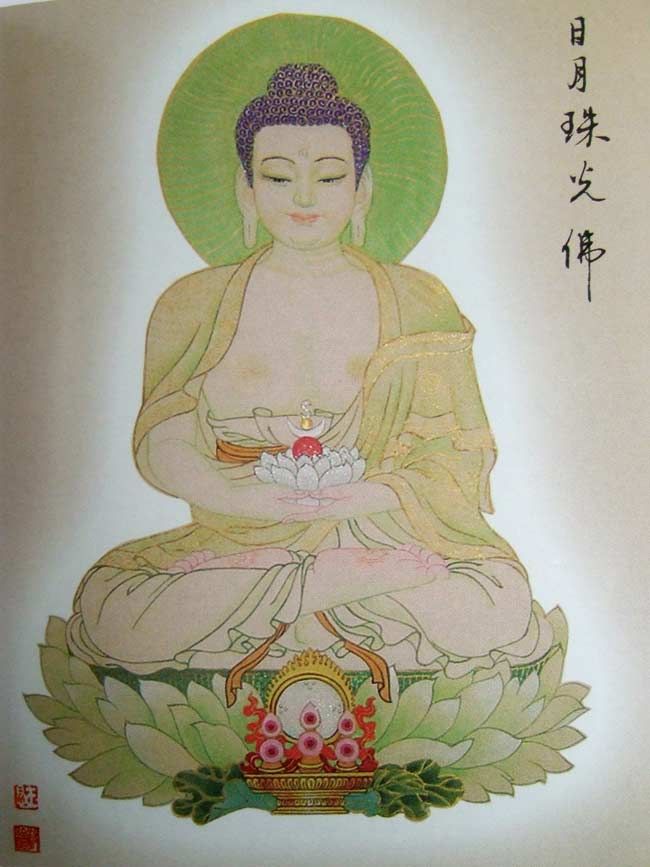 日月珠光佛